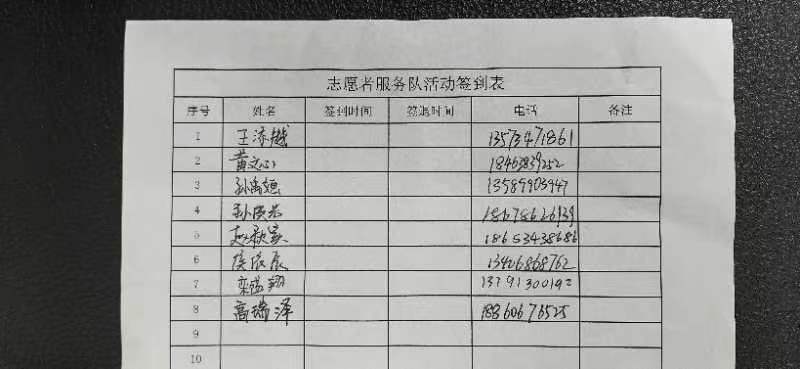 志愿者服务队活动签到表
序号 姓名 签到时间 签退时间 电话 备注
1 王添越 13573471861
2 黄文心 18463839252
3 孙禹 13589903947
4 孙 18678626139
5 赵 家 18653438686
6 侯 辰 13406868762
7 栾 翔 1379130019
8 高瑞泽 18860676525
9
10